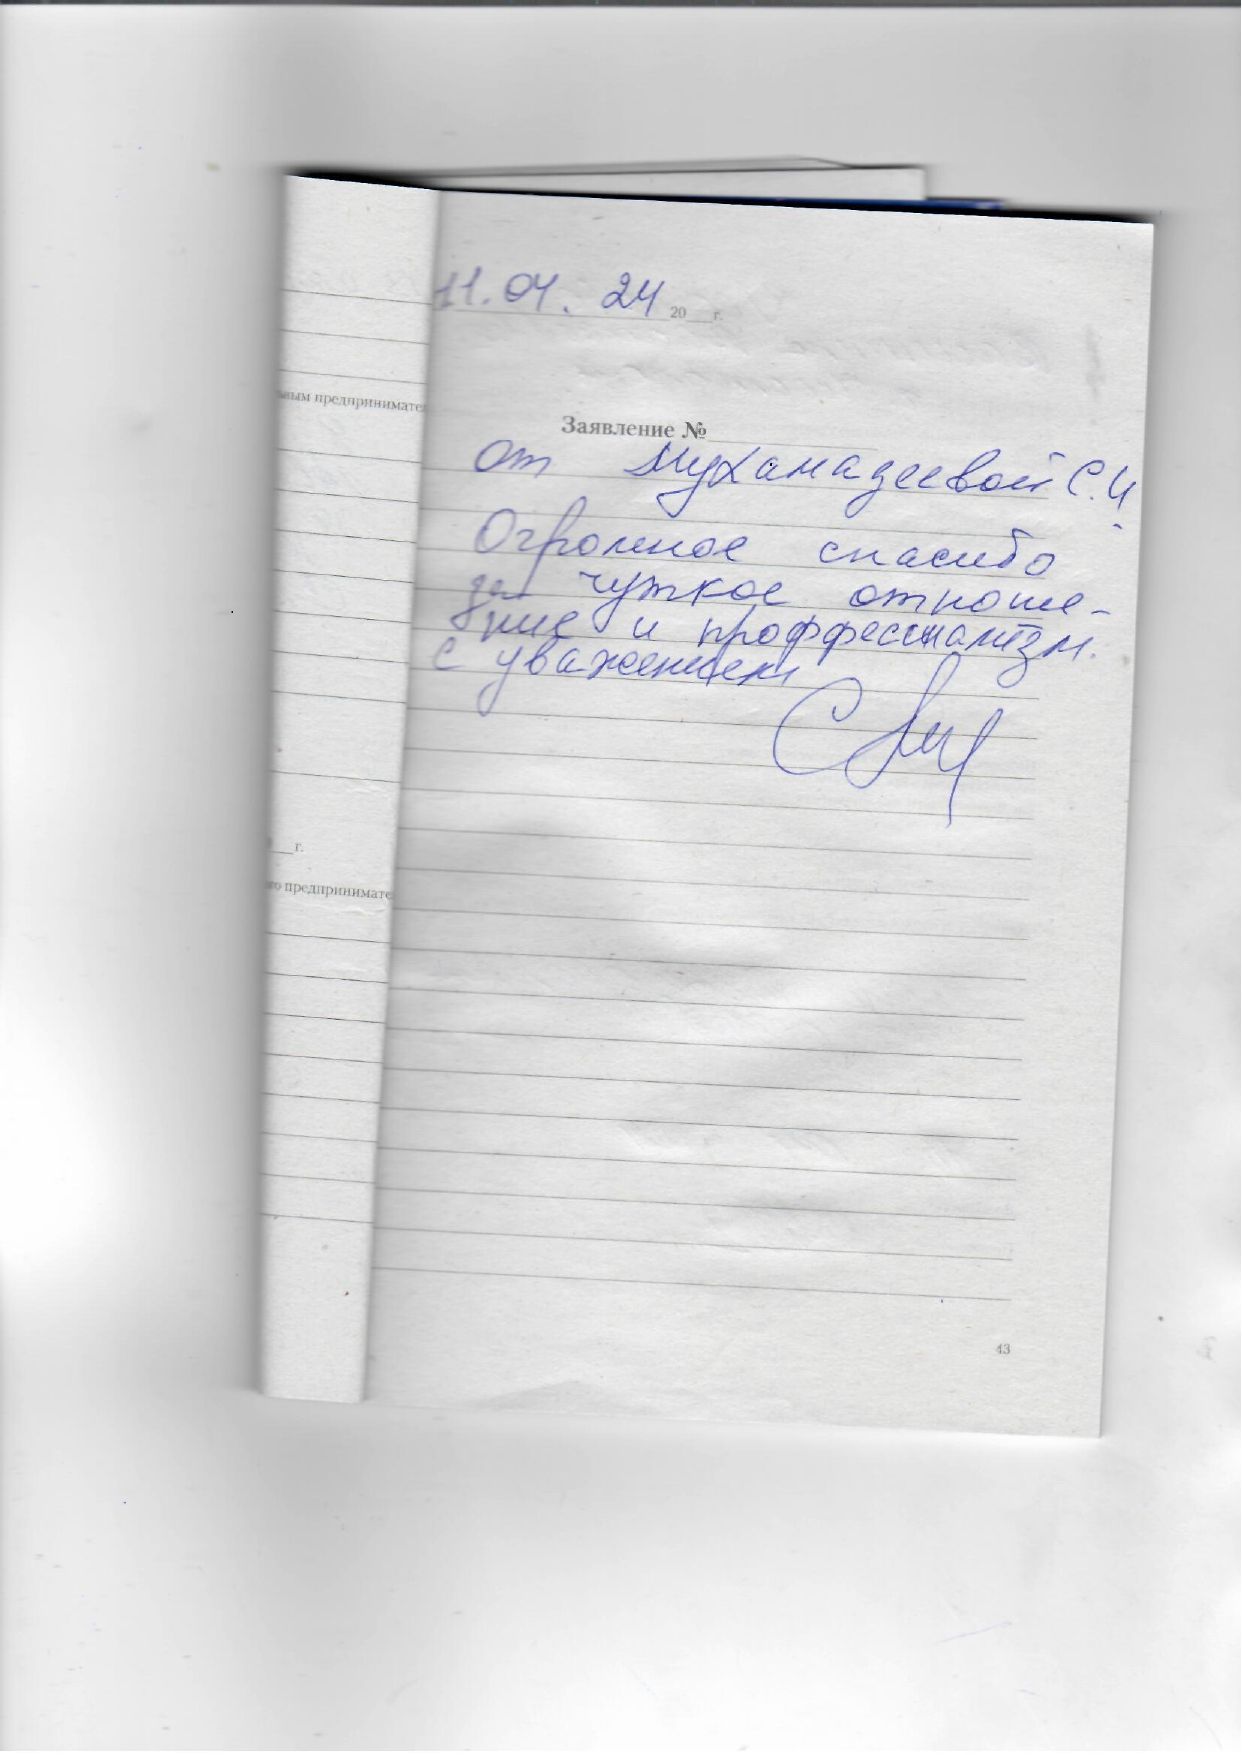 11.04.24 20 г.
ным предпринимате
Заявление №
от Мухамадеевой С.И.
Огромное спасибо
за чуткое отноше-
ние и проффессионализм.
С уважением
г.
го предпринимате
43